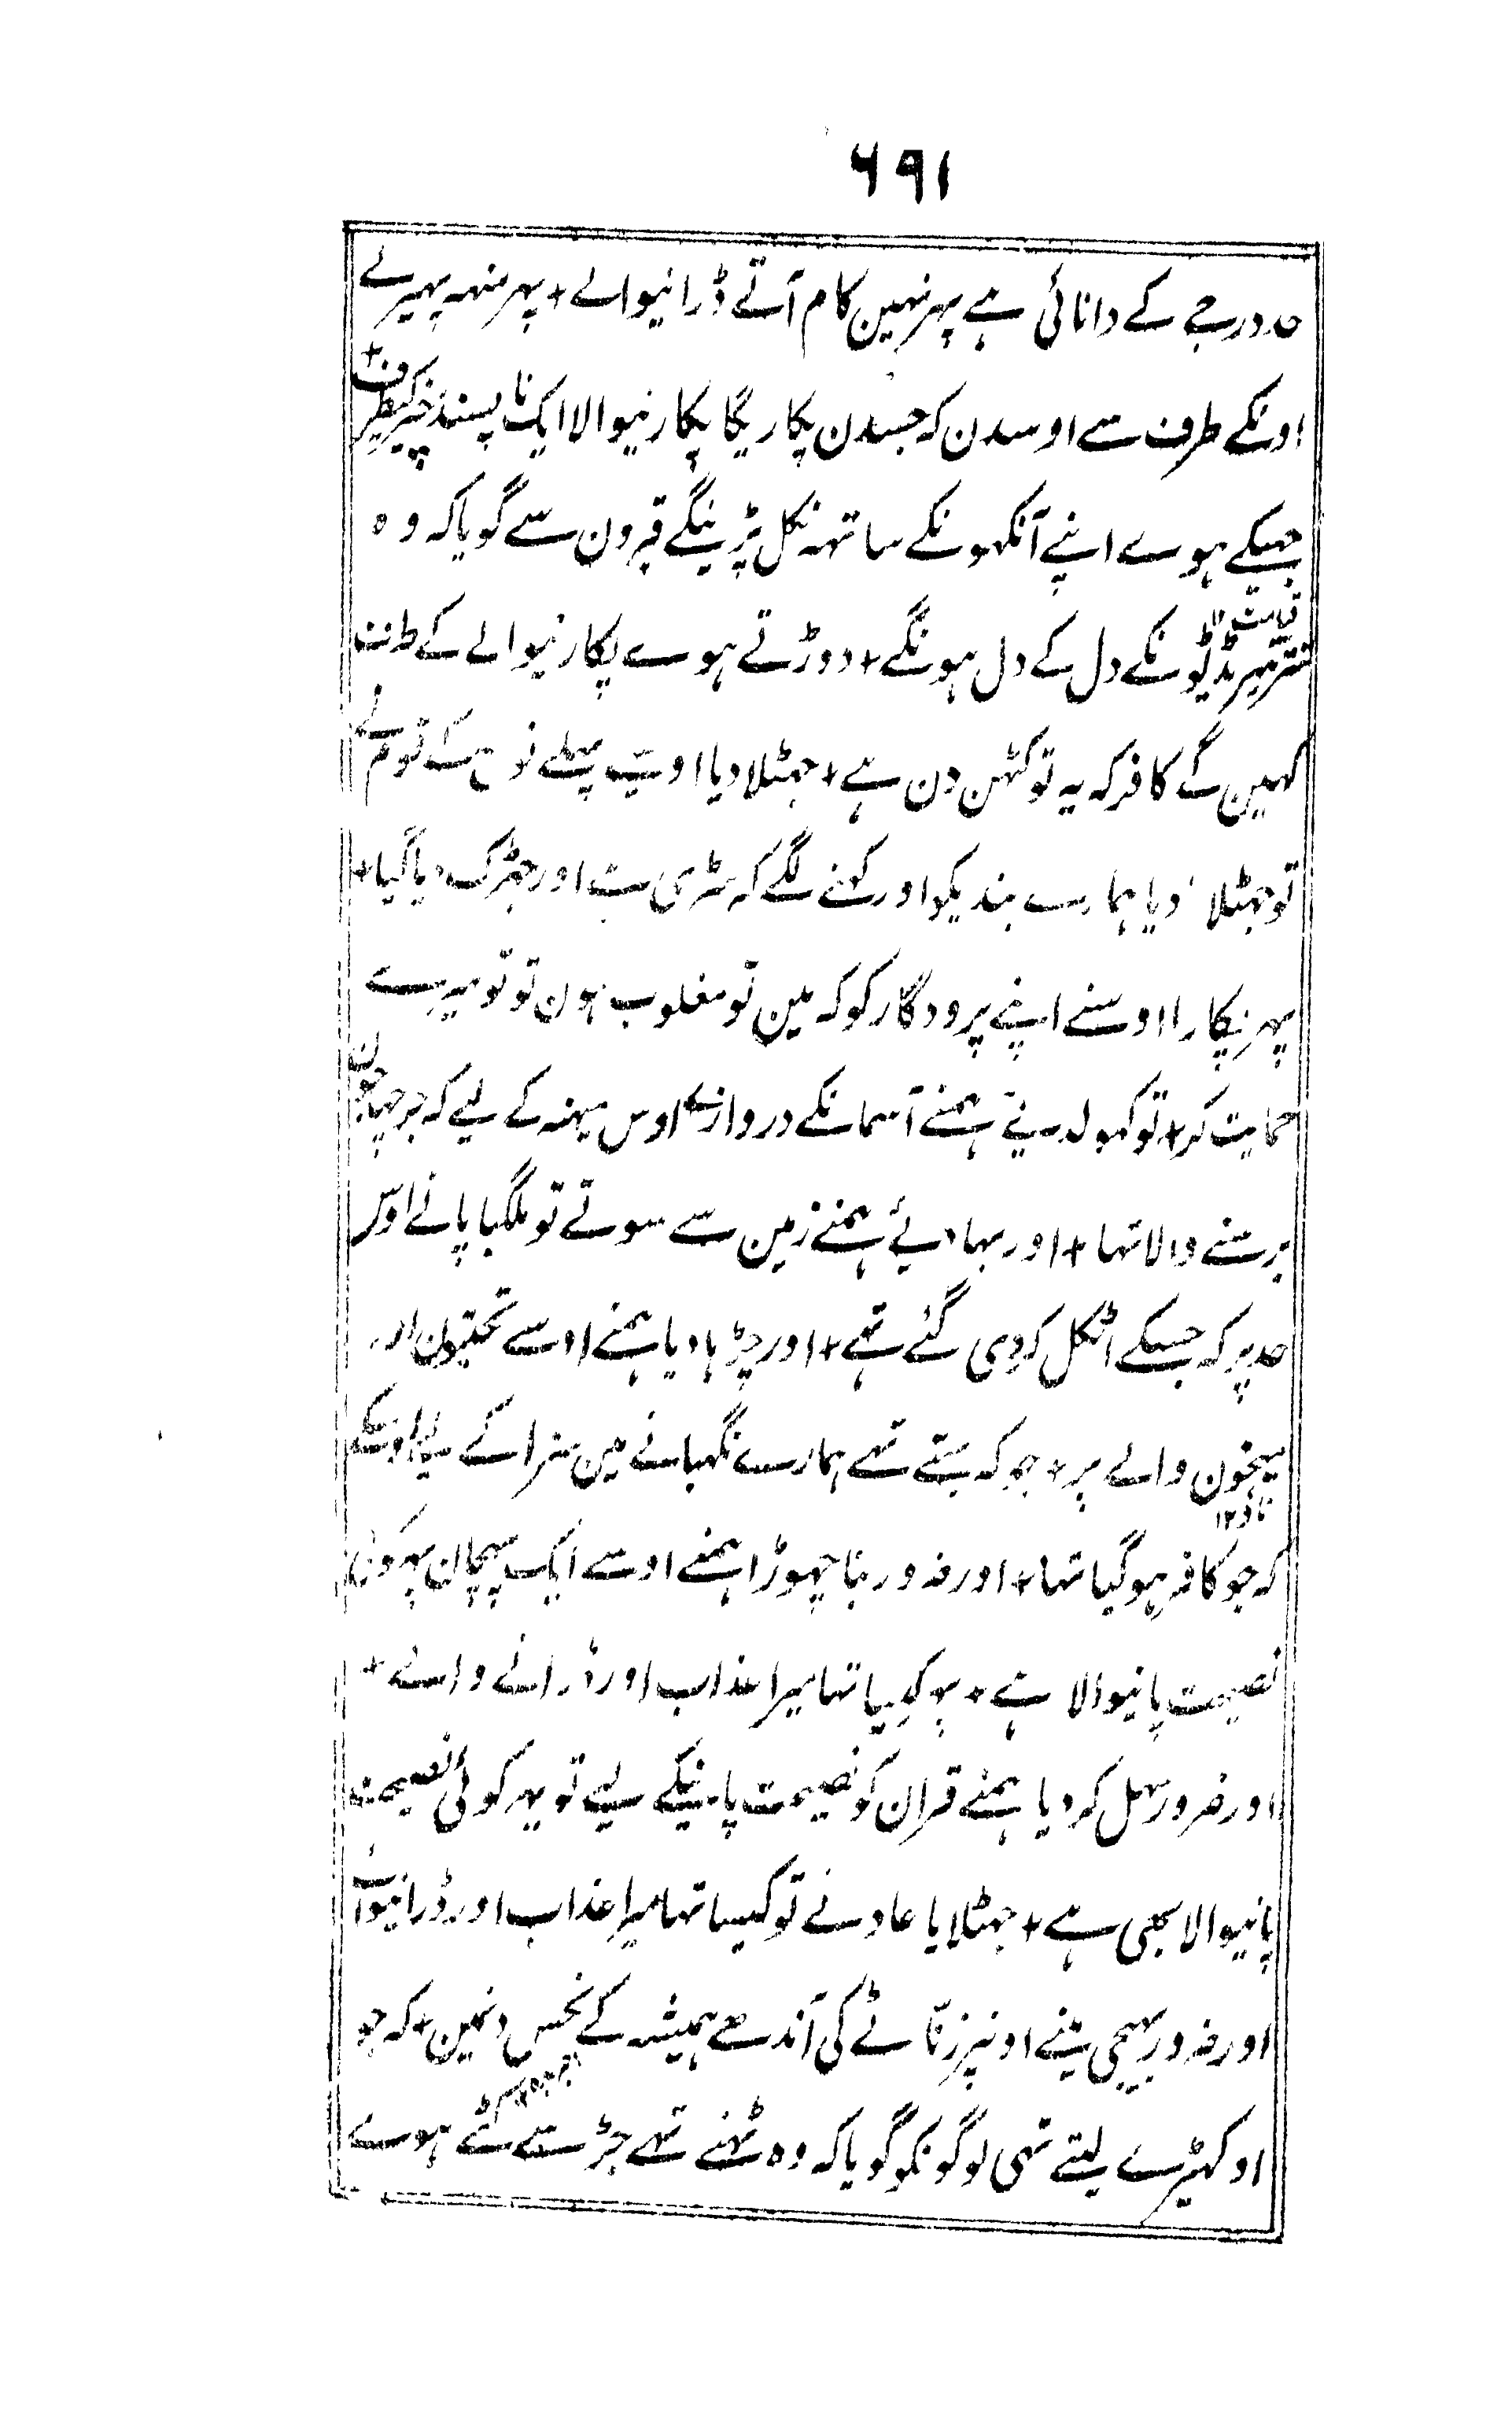 ۶۹۱
حد درجے کے دانائی ہے پہر نہین کام آتے ڈرانیوالے + پہر منہہ پہیرلے
اونکے طرف سے اوسدن کہ جسدن پکاریگا پکارنیوالا ایک ناپسند چیز کیطرف +
جہکے ہوے اپنے آنکہونکے ساتہہ نکل پڑینگے قبرون سے گویا کہ وہ
تتر بتر ٹڈیونکے دل کے دل ہونگے + دوڑتے ہوے پکارنیوالے کے طرف
کہین گے کافر کہ یہ تو کٹہن دن ہے + جہٹلا دیا اونسے پہلے نوح کے قوم نے
تو جہٹلا دیا ہمارے بندیکو اور کہنے لگے کہ سڑی ہے اور جہڑک دیا گیا +
پہر پکارا اوسنے اپنے پرودگار کو کہ مین تو مغلوب ہون تو تو میرے
حمایت کر + تو کہولدیے ہمنے آسمانکے دروازے اوس مینہ کے لیے کہ جو
برسنے والا تہا + اور بہادیئے ہمنے زمین سے سوتے تو ملگیا پانے اوس
حد پر کہ جسکے اٹکل کردی گئے تہے + اور چڑہا دیا ہمنے اوسے تختون اور
میخون والے پر + جو کہ بہتے تہے ہمارے نگہبانے مین سزا کے لیے اوسکے
ناؤ ۱۲
کہ جو کافر ہو گیا تہا + اور ضرور بنا چہوڑا ہمنے اوسے ایک پہچان پہر کوئی
نصیحت پانیوالا ہے + پہر کیسا تہا میرا عذاب اور ڈرانے والے +
اور ضرور سہل کر دیا ہمنے قران کو نصیحت پانیکے لیے تو پہر کوئی نصیحت
پانیوالا بھی ہے + جہٹلایا عاد نے تو کیسا تہا میرا عذاب اور ڈرانیوالے
اور ضرور بہیجی ہمنے اونپر زنّاٹے کی آندھے ہمیشہ کے نحس دنمین + کہ جو
اوکہیڑے لیتے تہی لوگونکو گویا کہ وہ ٹہنے تہے جڑ سے کٹے ہوے